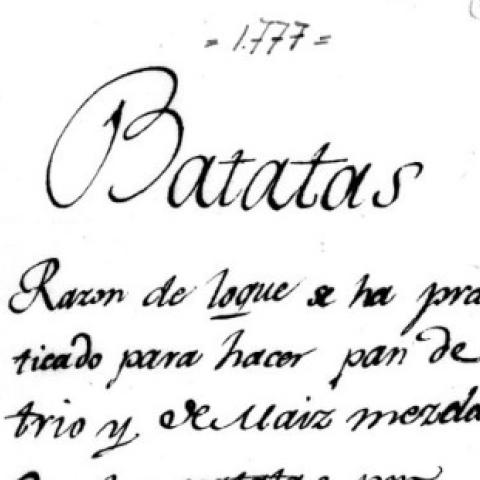 = 1.777 =
Batatas
Razon de loque se ha pra
ticado para hacer pan de
trio y de Maiz mezcla